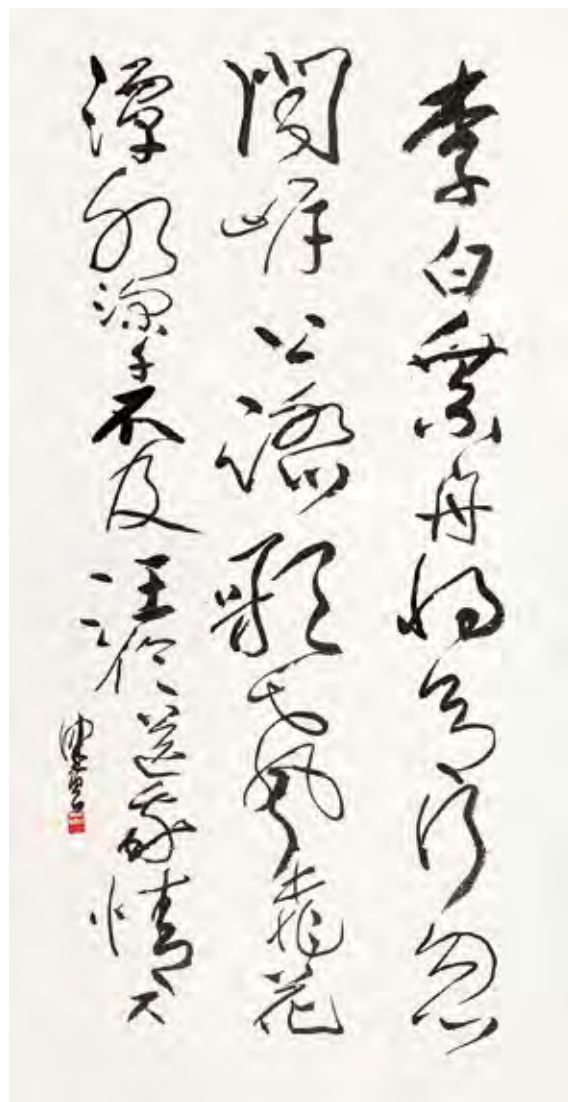 李白乘舟將欲行忽
聞岸上踏歌聲桃花
潭水深千不及汪倫送我情尺